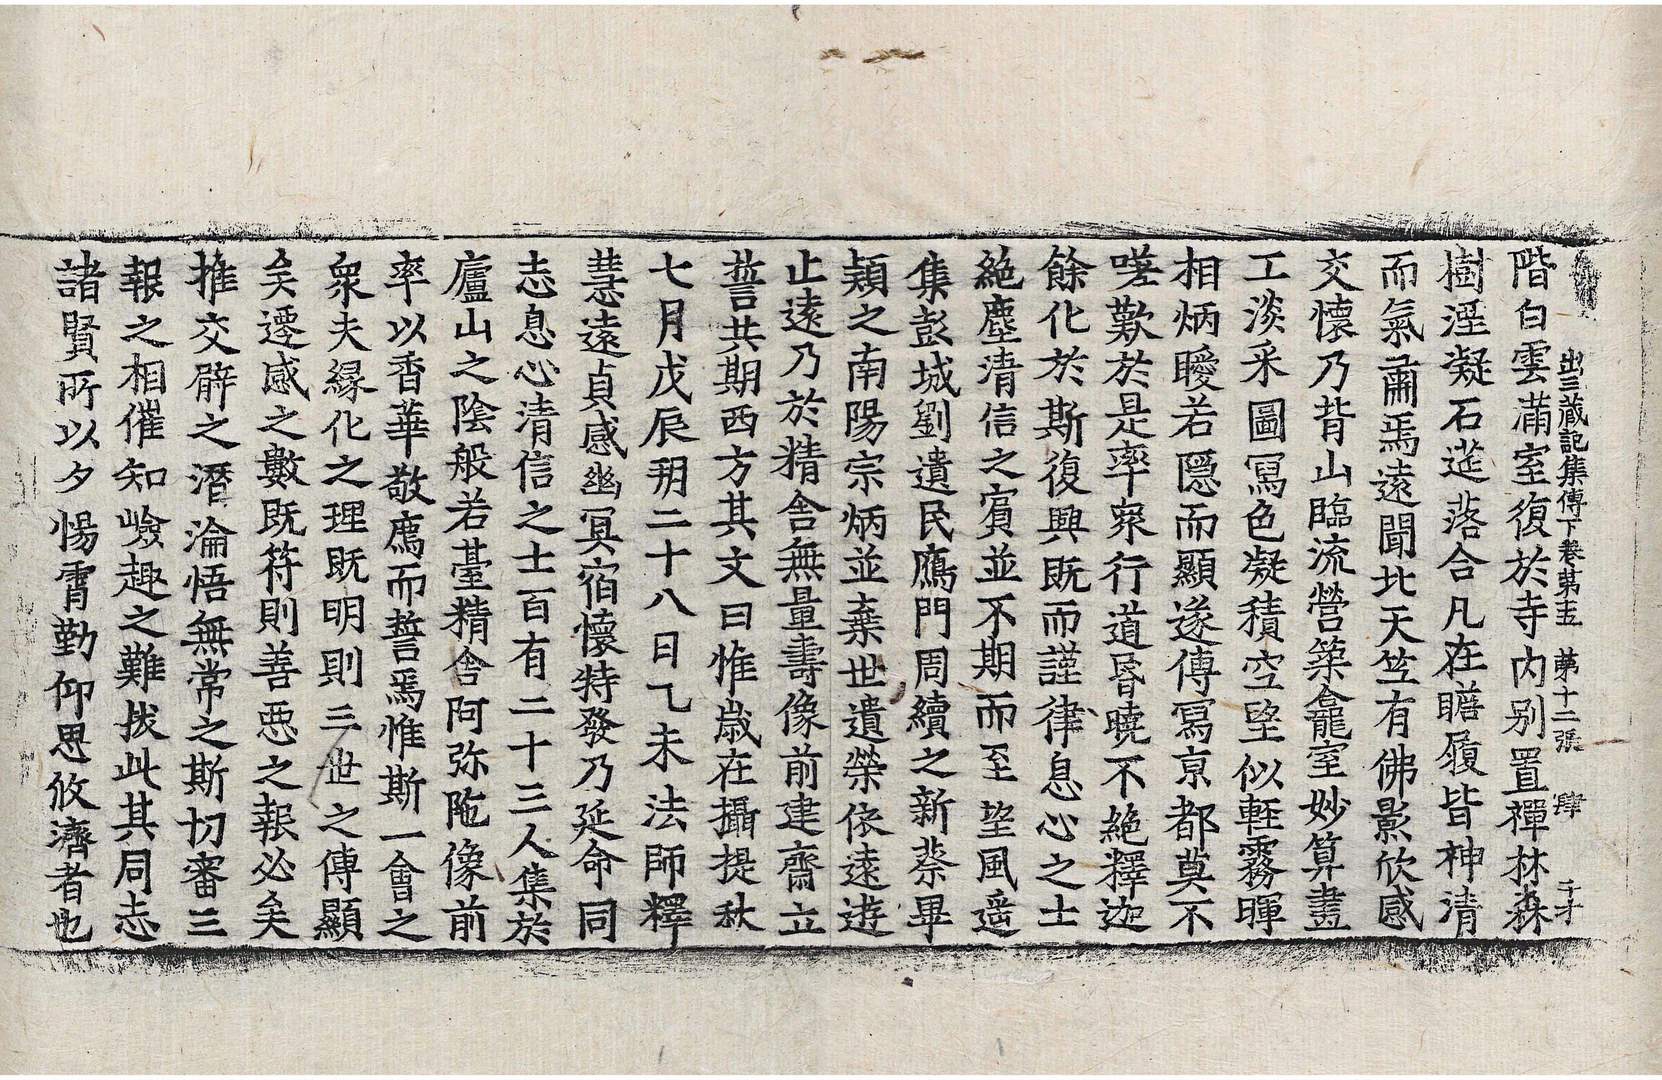 出三藏記集傳下卷第十五 第十二張 肆 千才
階白雲滿室復於寺内別置禪林森
樹湮凝石莚落合凡在瞻履皆神清
而氣肅焉遠聞北天竺有佛影欣感
交懷乃背山臨流營築龕室妙算畫
工淡采圖寫色凝積空望似輕霧暉
相炳曖若隱而顯遂傳寫京都莫不
嗟歎於是率衆行道昏曉不絶釋迦
餘化於斯復興既而謹律息心之士
絶塵清信之賓並不期而至望風遥
集彭城劉遺民鴈門周續之新蔡畢
穎之南陽宗炳並棄世遺榮依遠遊
止遠乃於精舍無量壽像前建齋立
誓共期西方其文曰惟歲在攝提秋
七月戊辰朔二十八日乙未法師釋
慧遠貞感幽冥宿懷特發乃延命同
志息心清信之士百有二十三人集於
廬山之陰般若臺精舍阿弥陁像前
率以香華敬廌而誓焉惟斯一會之
衆夫縁化之理既明則三世之傳顯
矣遷感之數既符則善惡之報必矣
推交臂之潛淪悟無常之斯切審三
報之相催知嶮趣之難拔此其同志
諸賢所以夕惕霄勤仰思攸濟者也